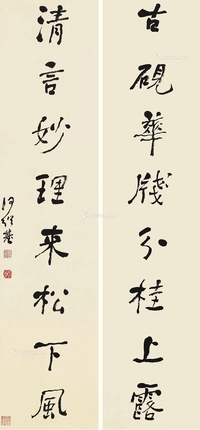 古硯華牋分桂上露
清言妙理來松下風
何紹基